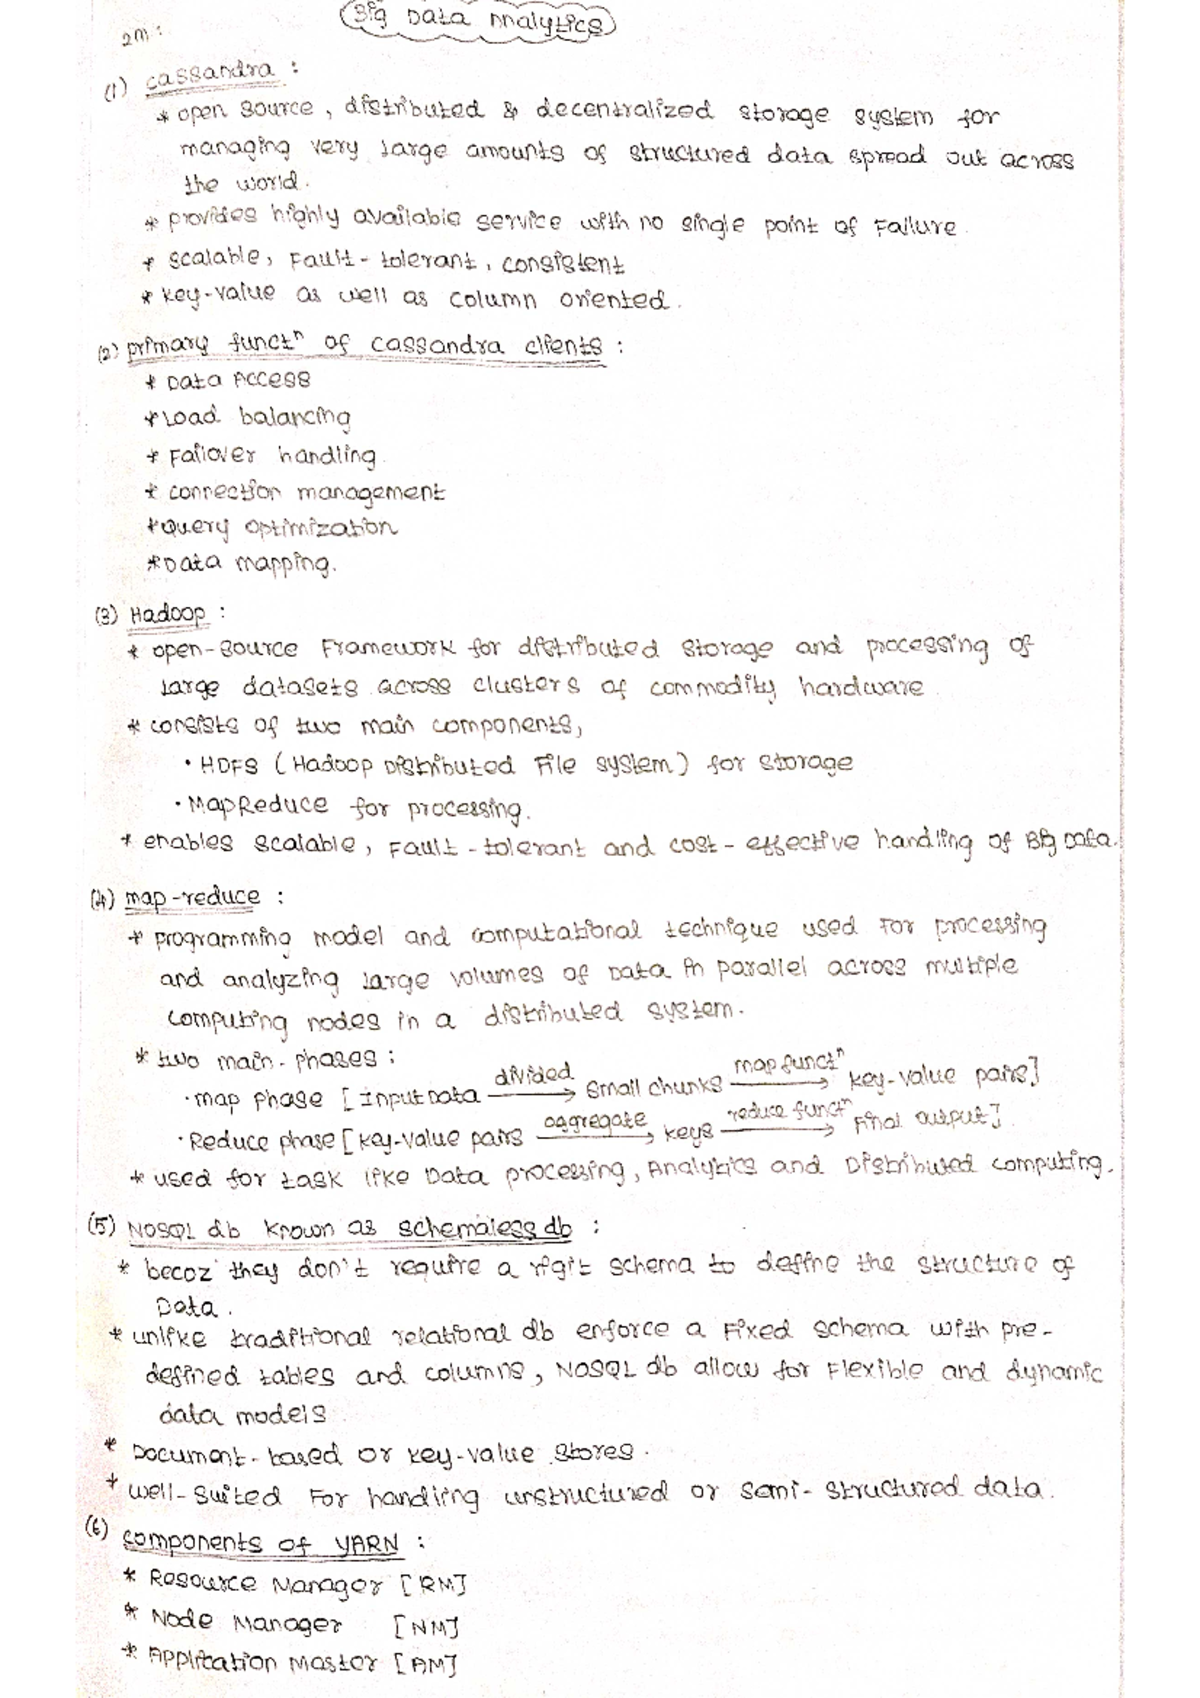 Big Data Analytics
2m:
(1) cassandra :
* open source, distributed & decentralized storage system for
managing very large amounts of structured data spread out across
the world.
* provides highly available service with no single point of Failure.
* scalable, Fault-tolerant, consistent
* key-value as well as column oriented.
(2) primary functⁿ of cassandra clients :
* Data Access
* Load balancing
* Failover handling.
* connection management
* Query optimization
* Data mapping.
(3) Hadoop :
* open-source Framework for distributed storage and processing of
large datasets across clusters of commodity hardware.
* consists of two main components,
• HDFS (Hadoop Distributed File system) for storage
• MapReduce for processing.
* enables scalable, Fault-tolerant and cost-effective handling of Big Data.
(4) map-reduce :
* programming model and computational technique used For processing
and analyzing large volumes of Data in parallel across multiple
computing nodes in a distributed system.
* two main-phases :
• map phase [Input Data divided→ small chunks map functⁿ→ key-value pairs]
• Reduce phase [key-value pairs aggregate→ keys reduce functⁿ→ Final output].
* used for task like Data processing, Analytics and Distributed computing.
(5) NOSQL db known as schemaless db :
* becoz they don't require a rigit schema to define the structure of
Data.
* unlike traditional relational db enforce a Fixed schema with pre-
defined tables and columns, NOSQL db allow for Flexible and dynamic
data models
* Document-based or key-value stores.
* well-suited For handling unstructured or semi-structured data.
(6) components of YARN :
* Resource Manager [RM]
* Node Manager [NM]
* Application Master [AM]